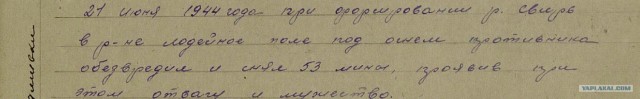 21 июня 1944 года при форсировании р. Свирь
в р-не Лодейное поле под огнем противника
обезвредил и снял 53 мины, проявив при
этом отвагу и мужество.
YAPLAKAL.COM